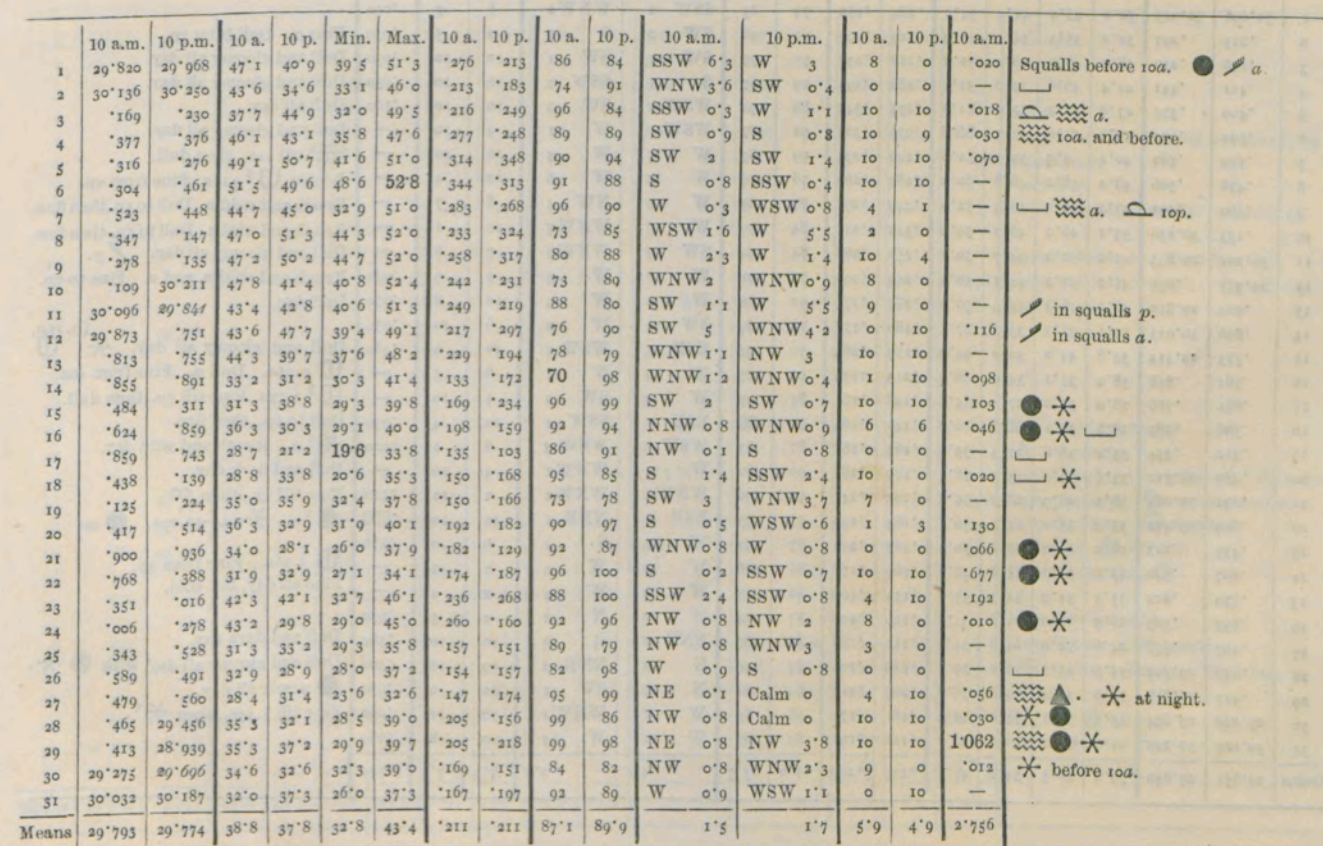 10 a.m. 10 p.m. 10 a. 10 p. Min. Max. 10 a. 10 p. 10 a. 10 p. 10 a.m. 10 p.m. 10 a. 10 p. 10 a.m.
1 29·820 29·968 47·1 40·9 39·5 51·3 ·276 ·213 86 84 SSW 6·3 W 3 8 0 ·020 Squalls before 10a. a.
2 30·136 30·250 43·6 34·6 33·1 46·0 ·213 ·183 74 91 WNW 3·6 SW 0·4 0 0 —
3 ·169 ·230 37·7 44·9 32·0 49·5 ·216 ·249 96 84 SSW 0·3 W 1·1 10 10 ·018 a.
4 ·377 ·376 46·1 43·1 35·8 47·6 ·277 ·248 89 89 SW 0·9 S 0·8 10 9 ·030 10a. and before.
5 ·316 ·276 49·1 50·7 41·6 51·0 ·314 ·348 90 94 SW 2 SW 1·4 10 10 ·070
6 ·304 ·461 51·5 49·6 48·6 52·8 ·344 ·313 91 88 S 0·8 SSW 0·4 10 10 —
7 ·523 ·448 44·7 45·0 32·9 51·0 ·283 ·268 96 90 W 0·3 WSW 0·8 4 1 — a. 10p.
8 ·347 ·147 47·0 51·3 44·3 52·0 ·233 ·324 73 85 WSW 1·6 W 5·5 2 0 —
9 ·278 ·135 47·2 50·2 44·7 52·0 ·258 ·317 80 88 W 2·3 W 1·4 10 4 —
10 ·109 30·211 47·8 41·4 40·8 52·4 ·242 ·231 73 89 WNW 2 WNW 0·9 8 0 —
11 30·096 29·841 43·4 42·8 40·6 51·3 ·249 ·219 88 80 SW 1·1 W 5·5 9 0 — in squalls p.
12 29·873 ·751 43·6 47·7 39·4 49·1 ·217 ·297 76 90 SW 5 WNW 4·2 0 10 ·116 in squalls a.
13 ·813 ·755 44·3 39·7 37·6 48·2 ·229 ·194 78 79 WNW 1·1 NW 3 10 10 —
14 ·855 ·891 33·2 31·2 30·3 41·4 ·133 ·172 70 98 WNW 1·2 WNW 0·4 1 10 ·098
15 ·484 ·311 31·3 38·8 29·3 39·8 ·169 ·234 96 99 SW 2 SW 0·7 10 10 ·103
16 ·624 ·859 36·3 30·3 29·1 40·0 ·198 ·159 92 94 NNW 0·8 WNW 0·9 6 6 ·046
17 ·859 ·743 28·7 21·2 19·6 33·8 ·135 ·103 86 91 NW 0·1 S 0·8 0 0 —
18 ·438 ·139 28·8 33·8 20·6 35·3 ·150 ·168 95 85 S 1·4 SSW 2·4 10 0 ·020
19 ·125 ·224 35·0 35·9 32·4 37·8 ·150 ·166 73 78 SW 3 WNW 3·7 7 0 —
20 ·417 ·514 36·5 32·9 31·9 40·1 ·192 ·182 90 97 S 0·5 WSW 0·6 1 3 ·130
21 ·900 ·936 34·0 28·1 26·0 37·9 ·182 ·129 92 87 WNW 0·8 W 0·8 0 0 ·066
22 ·768 ·388 31·9 32·9 27·1 34·1 ·174 ·187 96 100 S 0·2 SSW 0·7 10 10 ·677
23 ·351 ·016 42·3 42·1 32·7 46·1 ·236 ·268 88 100 SSW 2·4 SSW 0·8 4 10 ·192
24 ·006 ·278 43·2 29·8 29·0 45·0 ·260 ·160 92 96 NW 0·8 NW 2 8 0 ·010
25 ·343 ·528 31·3 33·2 29·3 35·8 ·157 ·151 89 79 NW 0·8 WNW 3 3 0 —
26 ·589 ·491 32·9 28·9 28·0 37·2 ·154 ·157 82 98 W 0·9 S 0·8 0 0 —
27 ·479 ·560 28·4 31·4 23·6 32·6 ·147 ·174 95 99 NE 0·1 Calm 0 4 10 ·056 at night.
28 ·465 29·456 35·3 32·1 28·5 39·0 ·205 ·156 99 86 NW 0·8 Calm 0 10 10 ·030
29 ·413 28·939 35·3 37·2 29·9 39·7 ·205 ·218 99 98 NE 0·8 NW 3·8 10 10 1·062
30 29·275 29·696 34·6 32·6 32·3 39·0 ·169 ·151 84 82 NW 0·8 WNW 2·3 9 0 ·012 before 10a.
31 30·032 30·187 32·0 37·3 26·0 37·3 ·167 ·197 92 89 W 0·9 WSW 1·1 0 10 —
Means 29·793 29·774 38·8 37·8 32·8 43·4 ·211 ·211 87·1 89·9 1·5 1·7 5·9 4·9 2·756